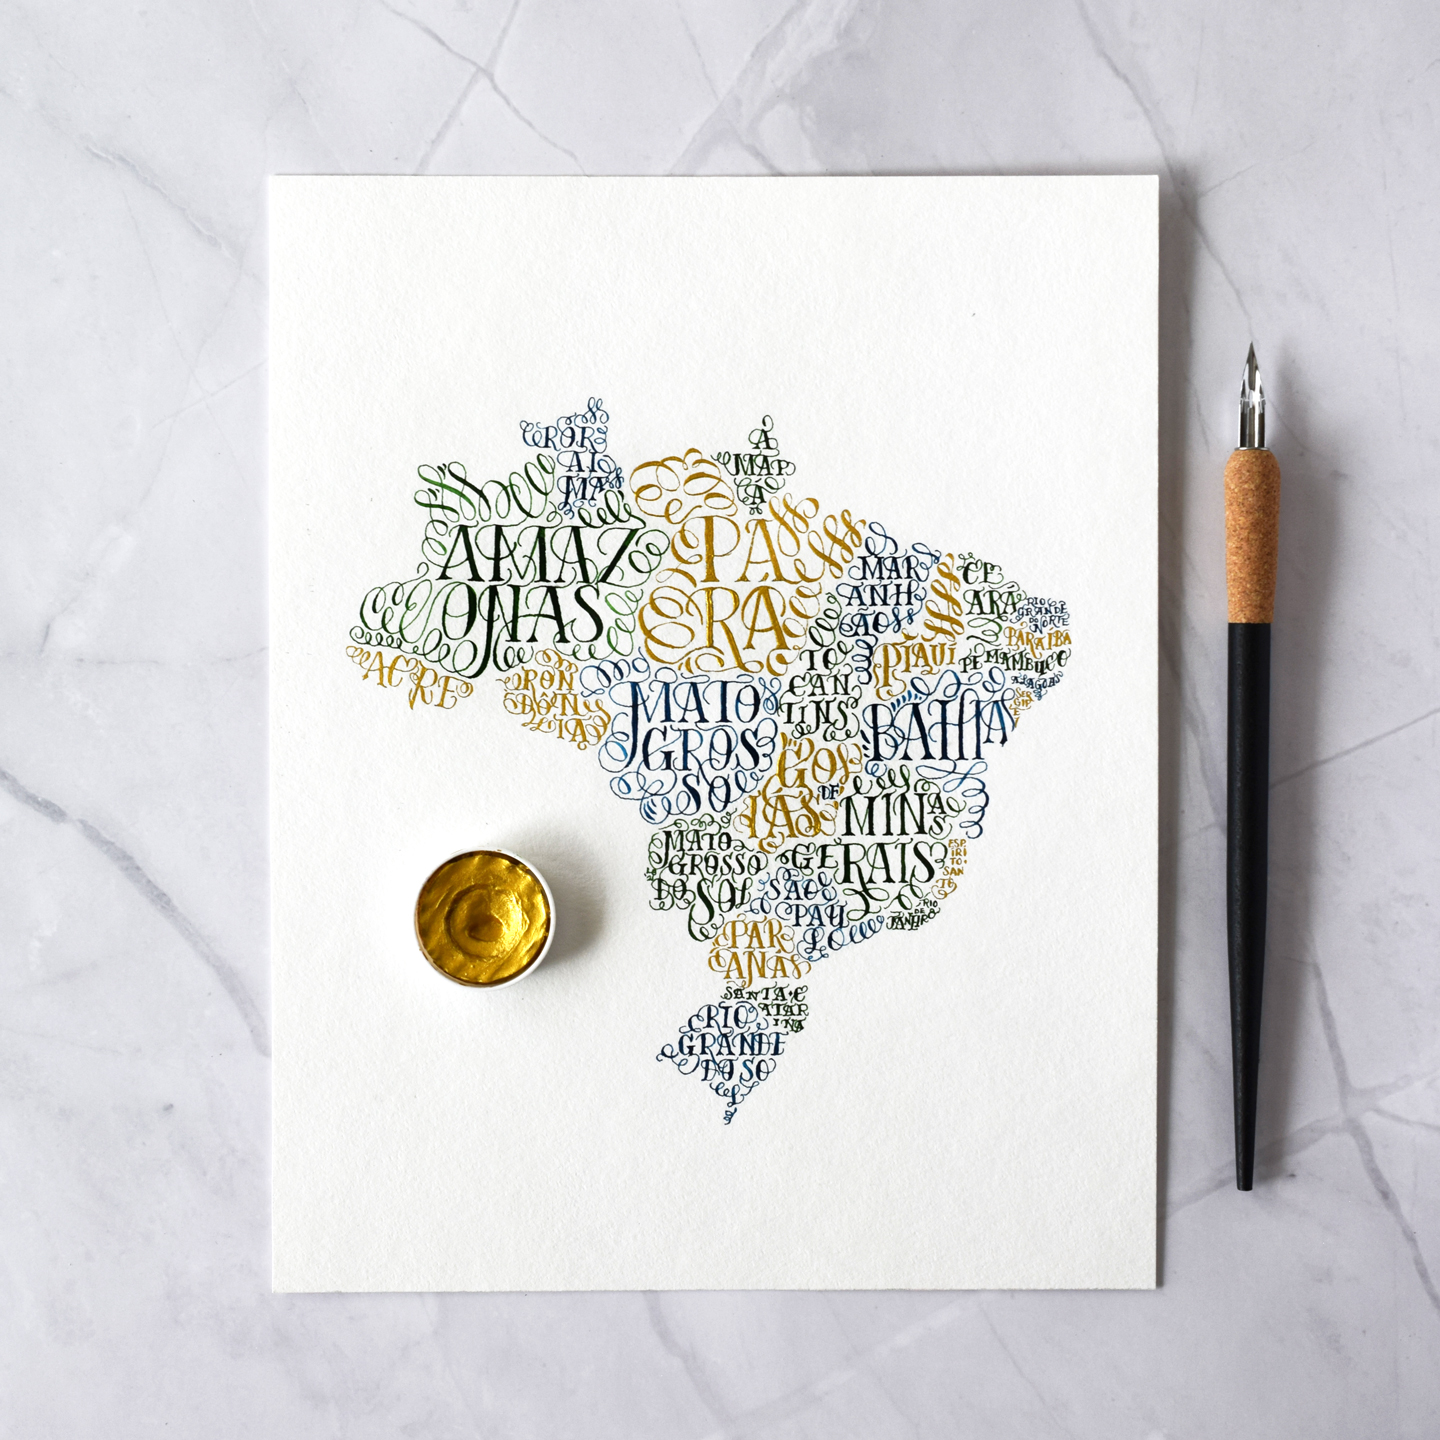 ROR
AI
MA
A
MAP
A
AMAZ
ONAS
PA
RÁ
MAR
ANH
ÃO
CE
ARÁ
RIO
GRANDE
DO
NORTE
PARAÍBA
PIAUÍ
PERNAMBUCO
ALAGOAS
SER
GIP
E
ACRE
RON
DÔN
IA
TO
CAN
TINS
BAHIA
MATO
GROS
SO
GOI
ÁS
DF
MINAS
GERAIS
ESP
ÍRI
TO
SAN
TO
MATO
GROSSO
DO SUL
SÃO
PAU
LO
RIO
DE
JANEIRO
PAR
ANÁ
SANTA C
ATAR
INA
RIO
GRANDE
DO SU
L